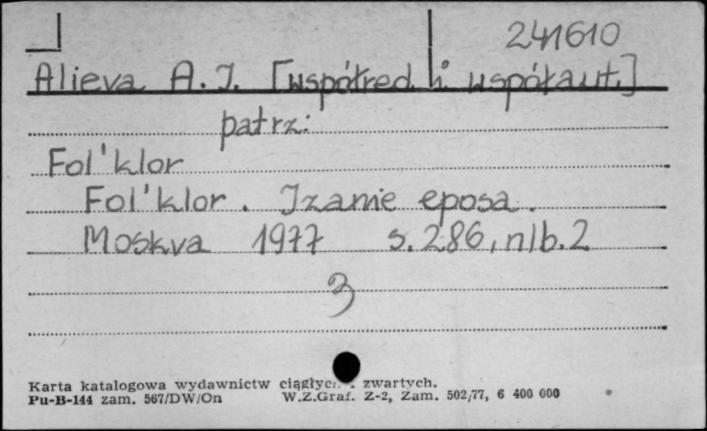 241610
Alieva A. J. [współred. i współaut.]
patrz:
Fol'klor
Fol'klor. Izanie eposa.
Moskva 1977 s. 286, nlb. 2
3
Karta katalogowa wydawnictw ciągłych i zwartych.
Pu-B-144 zam. 567/DW/On W.Z.Graf. Z-2, Zam. 502/77, 6 400 000